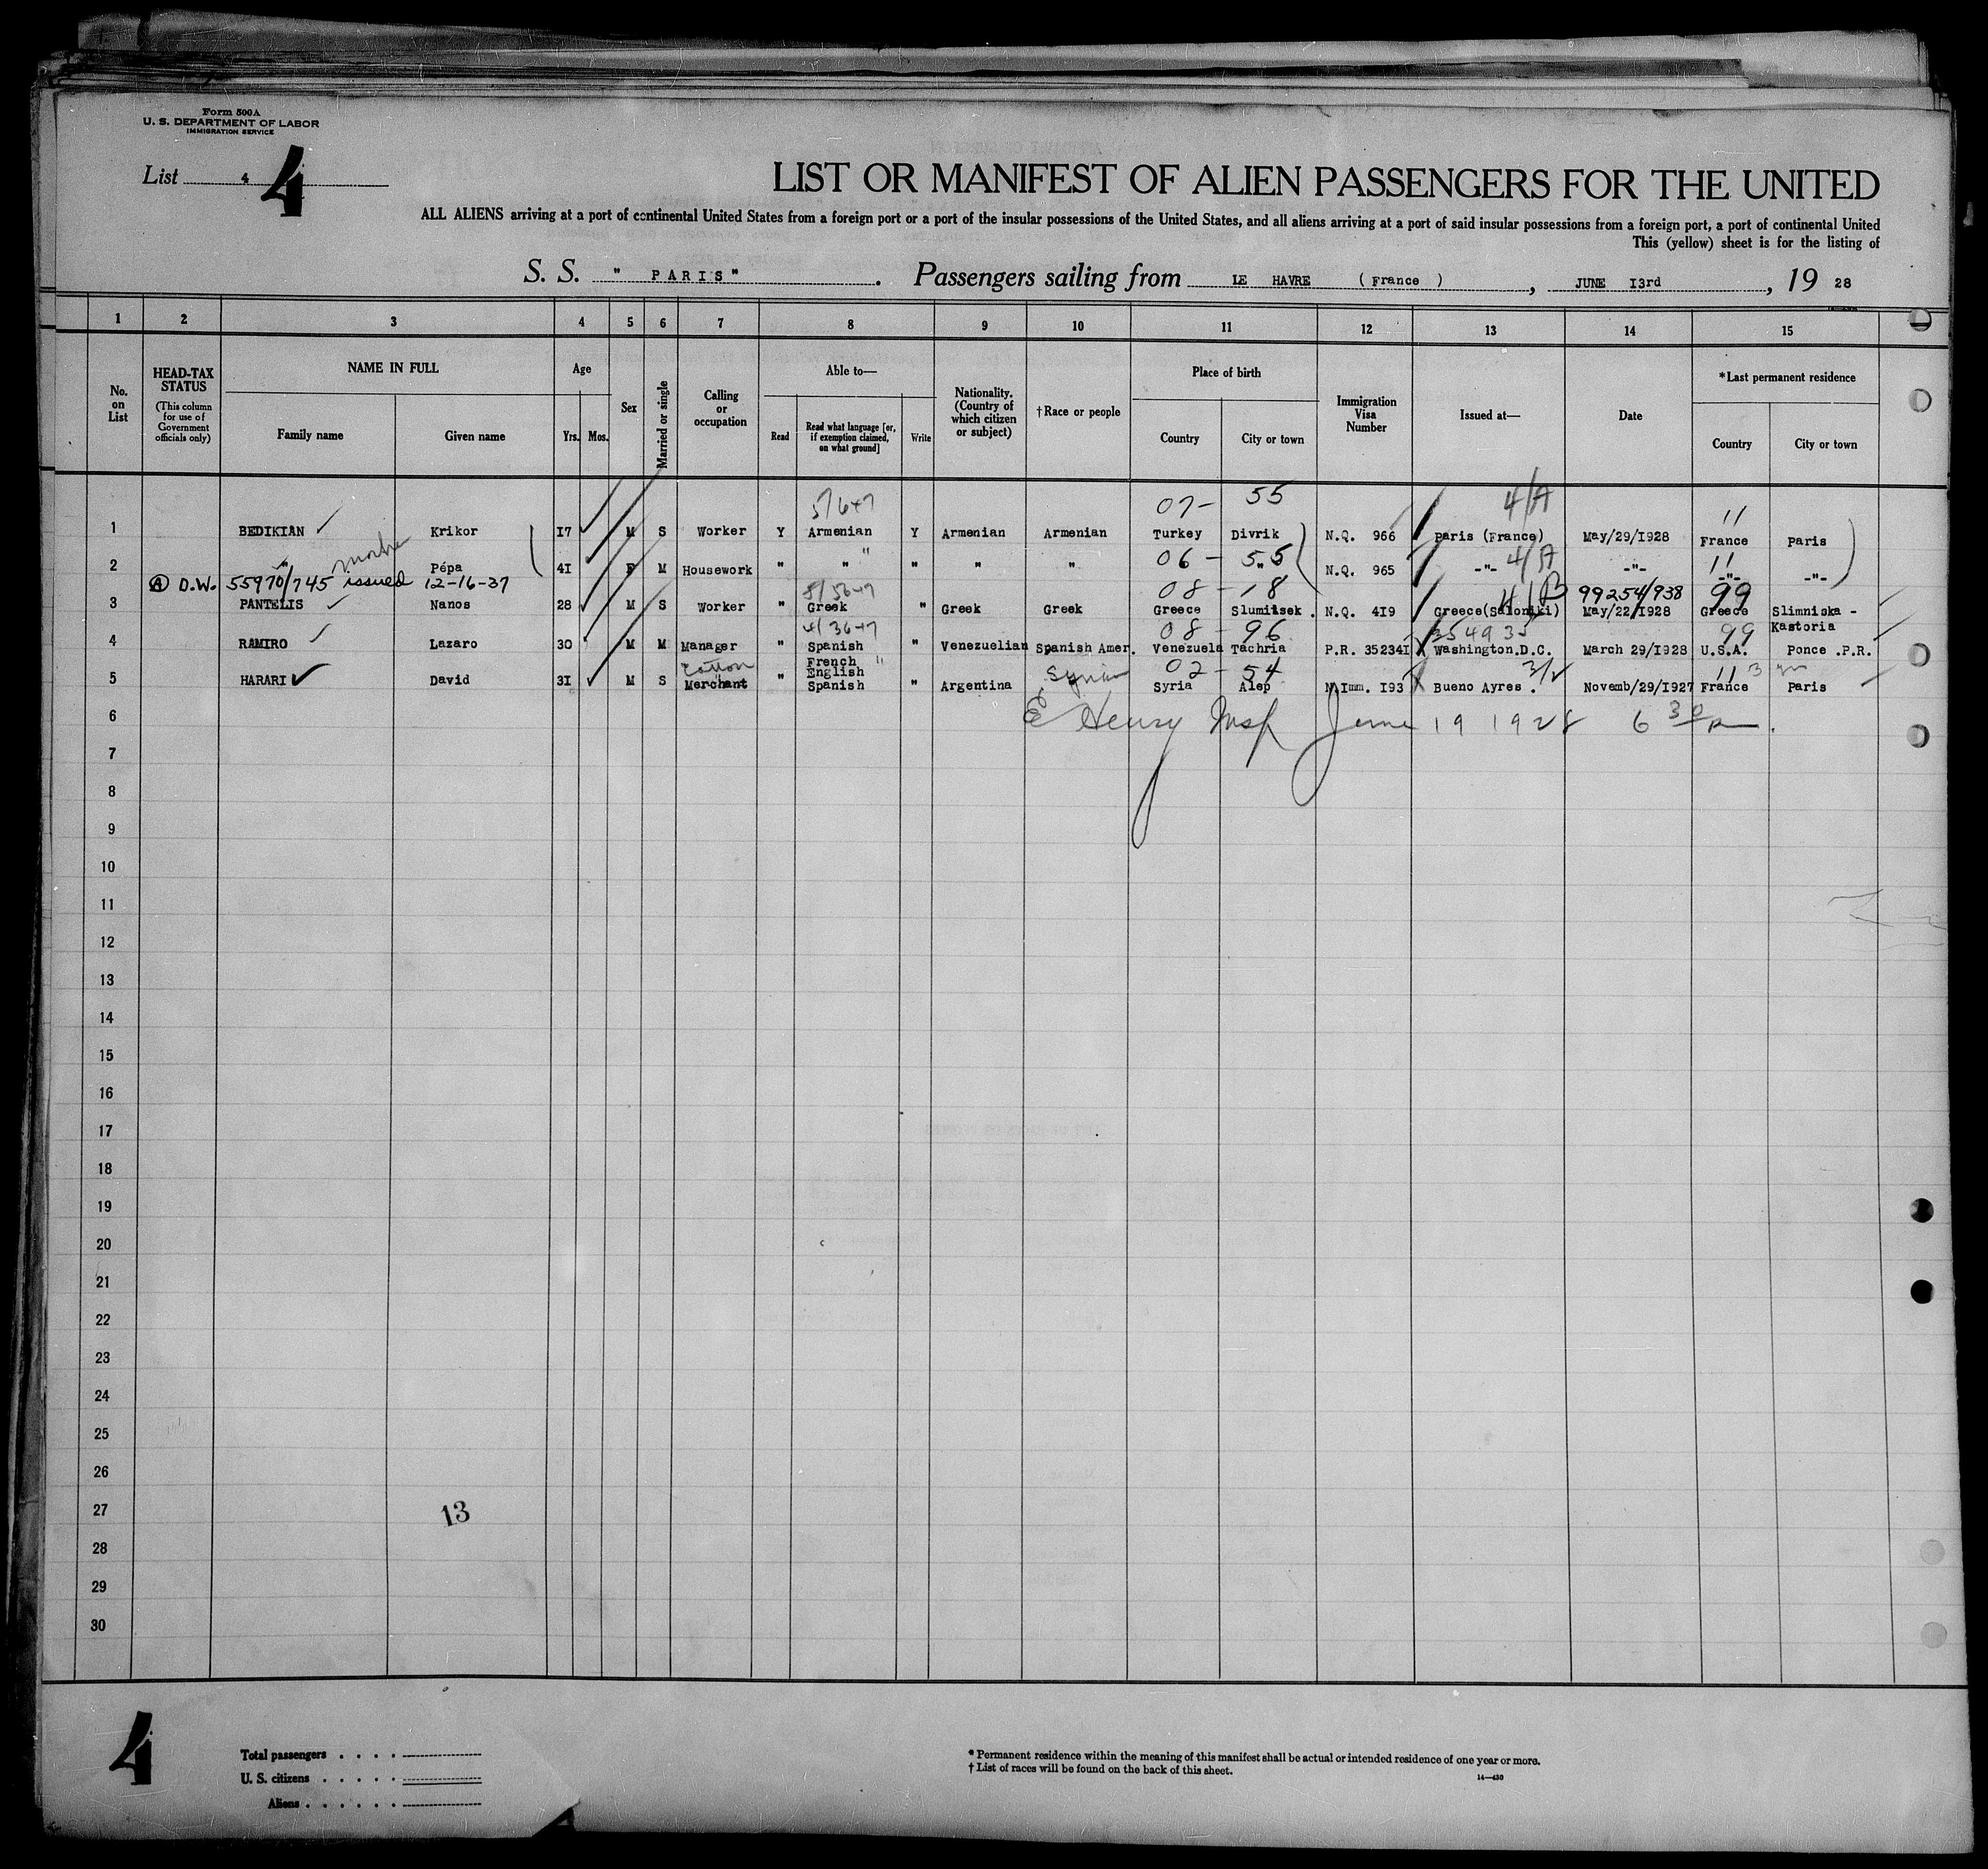 Form 500A
U. S. DEPARTMENT OF LABOR
IMMIGRATION SERVICE
List 4 4
LIST OR MANIFEST OF ALIEN PASSENGERS FOR THE UNITED
ALL ALIENS arriving at a port of continental United States from a foreign port or a port of the insular possessions of the United States, and all aliens arriving at a port of said insular possessions from a foreign port, a port of continental United
This (yellow) sheet is for the listing of
S. S. " PARIS" . Passengers sailing from LE HAVRE ( France ) , JUNE I3rd , 19 28
1 2 3 4 5 6 7 8 9 10 11 12 13 14 15
No. on List
HEAD-TAX STATUS
(This column for use of Government officials only)
NAME IN FULL
Family name Given name
Age
Yrs. Mos.
Sex
Married or single
Calling or occupation
Able to—
Read Read what language [or, if exemption claimed, on what ground] Write
Nationality. (Country of which citizen or subject)
†Race or people
Place of birth
Country City or town
Immigration Visa Number
Issued at—
Date
*Last permanent residence
Country City or town
07- 55 4/A 11
1 BEDIKIAN Krikor I7 M S Worker Y Armenian Y Armenian Armenian Turkey Divrik N.Q. 966 Paris (France) May/29/I928 France Paris
06 - 55 4/A 11
2 " Pépa 4I F M Housework " " " " " " N.Q. 965 -"- -"- -"- -"-
A D.W. 55970/745 issued 12-16-37 08 - 18 4/B 99254/938 99
3 PANTELIS Nanos 28 M S Worker " Greek " Greek Greek Greece Slumitsek . N.Q. 4I9 Greece(Saloniki) May/22/I928 Greece Slimniska -
Kastoria
08 - 96 99
4 RAMIRO Lazaro 30 M M Manager " Spanish " Venezuelian Spanish Amer. Venezuela Tachria P.R. 35234I Washington.D.C. March 29/I928 U.S.A. Ponce .P.R.
French "
Cotton English Syrian 02 - 54 11
5 HARARI David 3I M S Merchant " Spanish " Argentina Syria Alep N.Imm. I93 Bueno Ayres . Novemb/29/I927 France Paris
6 E Henry Insp June 19 1928 6 30 p
7
8
9
10
11
12
13
14
15
16
17
18
19
20
21
22
23
24
25
26
27 13
28
29
30
4
Total passengers
U. S. citizens
Aliens
* Permanent residence within the meaning of this manifest shall be actual or intended residence of one year or more.
† List of races will be found on the back of this sheet.
14—430